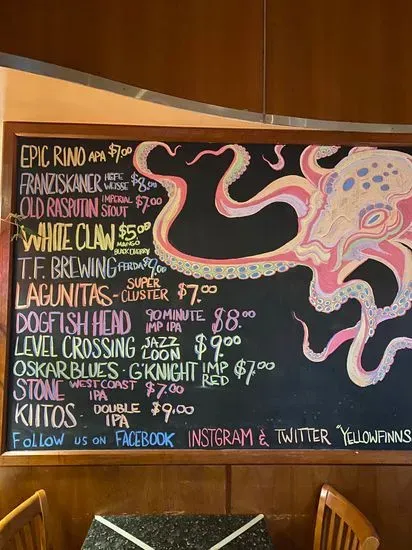 EPIC RINO APA $7.00
FRANZISKANER HEFE WEISSE $8.00
OLD RASPUTIN IMPERIAL STOUT $7.00
WHITE CLAW $5.00 MANGO BLACK CHERRY
T.F. BREWING FERDA $9.00
LAGUNITAS - SUPER CLUSTER $7.00
DOGFISH HEAD 90 MINUTE IMP IPA $8.00
LEVEL CROSSING JAZZ LOON $9.00
OSKAR BLUES - G'KNIGHT IMP RED $7.00
STONE WEST COAST IPA $7.00
KIITOS - DOUBLE IPA $9.00
FOLLOW US ON FACEBOOK INSTGRAM & TWITTER "YELLOWFINNS